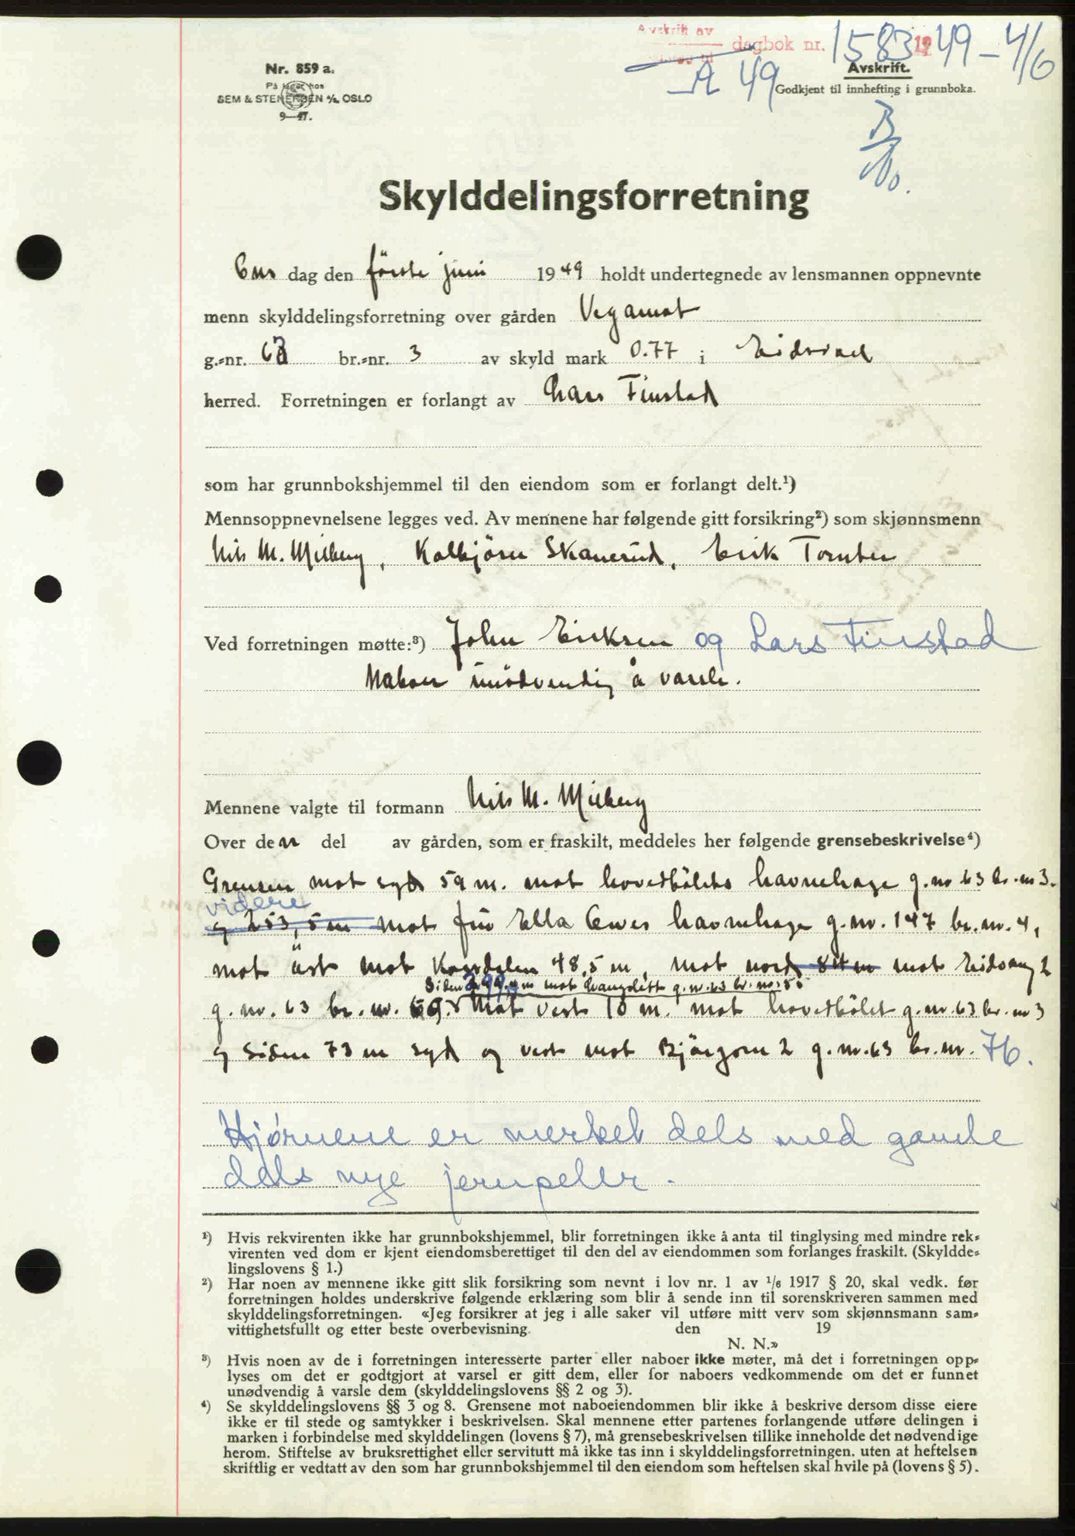 Avskrift av
dagbok nr. 1583 1949 - 4/6
A 49
Avskrift.
Godkjent til innhefting i grunnboka.
Nr. 859 a.
På lager hos
SEM & STENERSEN A/S, OSLO
9—47.
Skylddelingsforretning
Ons dag den første juni 19 49 holdt undertegnede av lensmannen oppnevnte
menn skylddelingsforretning over gården Vegamot
g.-nr. 63 br.-nr. 3 av skyld mark 0.77 i Eidsvoll
herred. Forretningen er forlangt av Lars Finstad
som har grunnbokshjemmel til den eiendom som er forlangt delt.¹)
Mennsoppnevnelsene legges ved. Av mennene har følgende gitt forsikring²) som skjønnsmenn
Nils M. Milberg, Kolbjörn Skanerud, Erik Tomter
Ved forretningen møtte:³) John Eriksen og Lars Finstad
Naboer unödvendig å varsle.
Mennene valgte til formann Nils M. Milberg
Over den del av gården, som er fraskilt, meddeles her følgende grensebeskrivelse⁴)
Grensen mot syd 59 m. mot hovedbölets havnehage g.nr 63 br.nr 3.
videre
og 253,5 m mot fru Ella Owes havnehage g.nr. 147 br.nr. 4,
mot öst mot Korsdalen 48,5 m, mot nord 84 m mot Eidsvang 2
Siden 299 m mot g.nr. 63 br. nr. 55
g.nr. 63 br.nr. 69. Mot vest 10 m. mot hovedbölet g.nr. 63 br.nr 3
og siden 73 m syd og vest mot Björgom 2 g.nr. 63 br.nr. 76.
Hjørnene er merket dels med gamle
dels nye jernpeller.
¹) Hvis rekvirenten ikke har grunnbokshjemmel, blir forretningen ikke å anta til tinglysing med mindre rek-
virenten ved dom er kjent eiendomsberettiget til den del av eiendommen som forlanges fraskilt. (Skyldde-
lingslovens § 1.)
²) Har noen av mennene ikke gitt slik forsikring som nevnt i lov nr. 1 av 1/6 1917 § 20, skal vedk. før
forretningen holdes underskrive følgende erklæring som blir å sende inn til sorenskriveren sammen med
skylddelingsforretningen. «Jeg forsikrer at jeg i alle saker vil utføre mitt verv som skjønnsmann sam-
vittighetsfullt og etter beste overbevisning. den 19
N. N.»
³) Hvis noen av de i forretningen interesserte parter eller naboer ikke møter, må det i forretningen opp-
lyses om det er godtgjort at varsel er gitt dem, eller for naboers vedkommende om det er funnet
unødvendig å varsle dem (skylddelingslovens §§ 2 og 3).
⁴) Se skylddelingslovens §§ 3 og 8. Grensene mot naboeiendommen blir ikke å beskrive dersom disse eiere
ikke er til stede og samtykker i beskrivelsen. Skal mennene etter partenes forlangende utføre delingen i
marken i forbindelse med skylddelingen (lovens § 7), må grensebeskrivelsen tillike inneholde det nødvendige
herom. Stiftelse av bruksrettighet eller servitutt må ikke tas inn i skylddelingsforretningen. uten at heftelsen
skriftlig er vedtatt av den som har grunnbokshjemmel til den eiendom som heftelsen skal hvile på (lovens § 5).